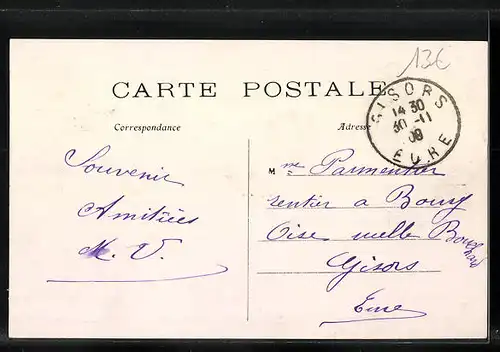 13€
CARTE POSTALE
GISORS
14 30
30 -11
09
EURE
Correspondance
Adresse
Souvenir
Amitiées
M. V.
Mme Parmentier
rentier a Boury
Oise
Gisors
Eure